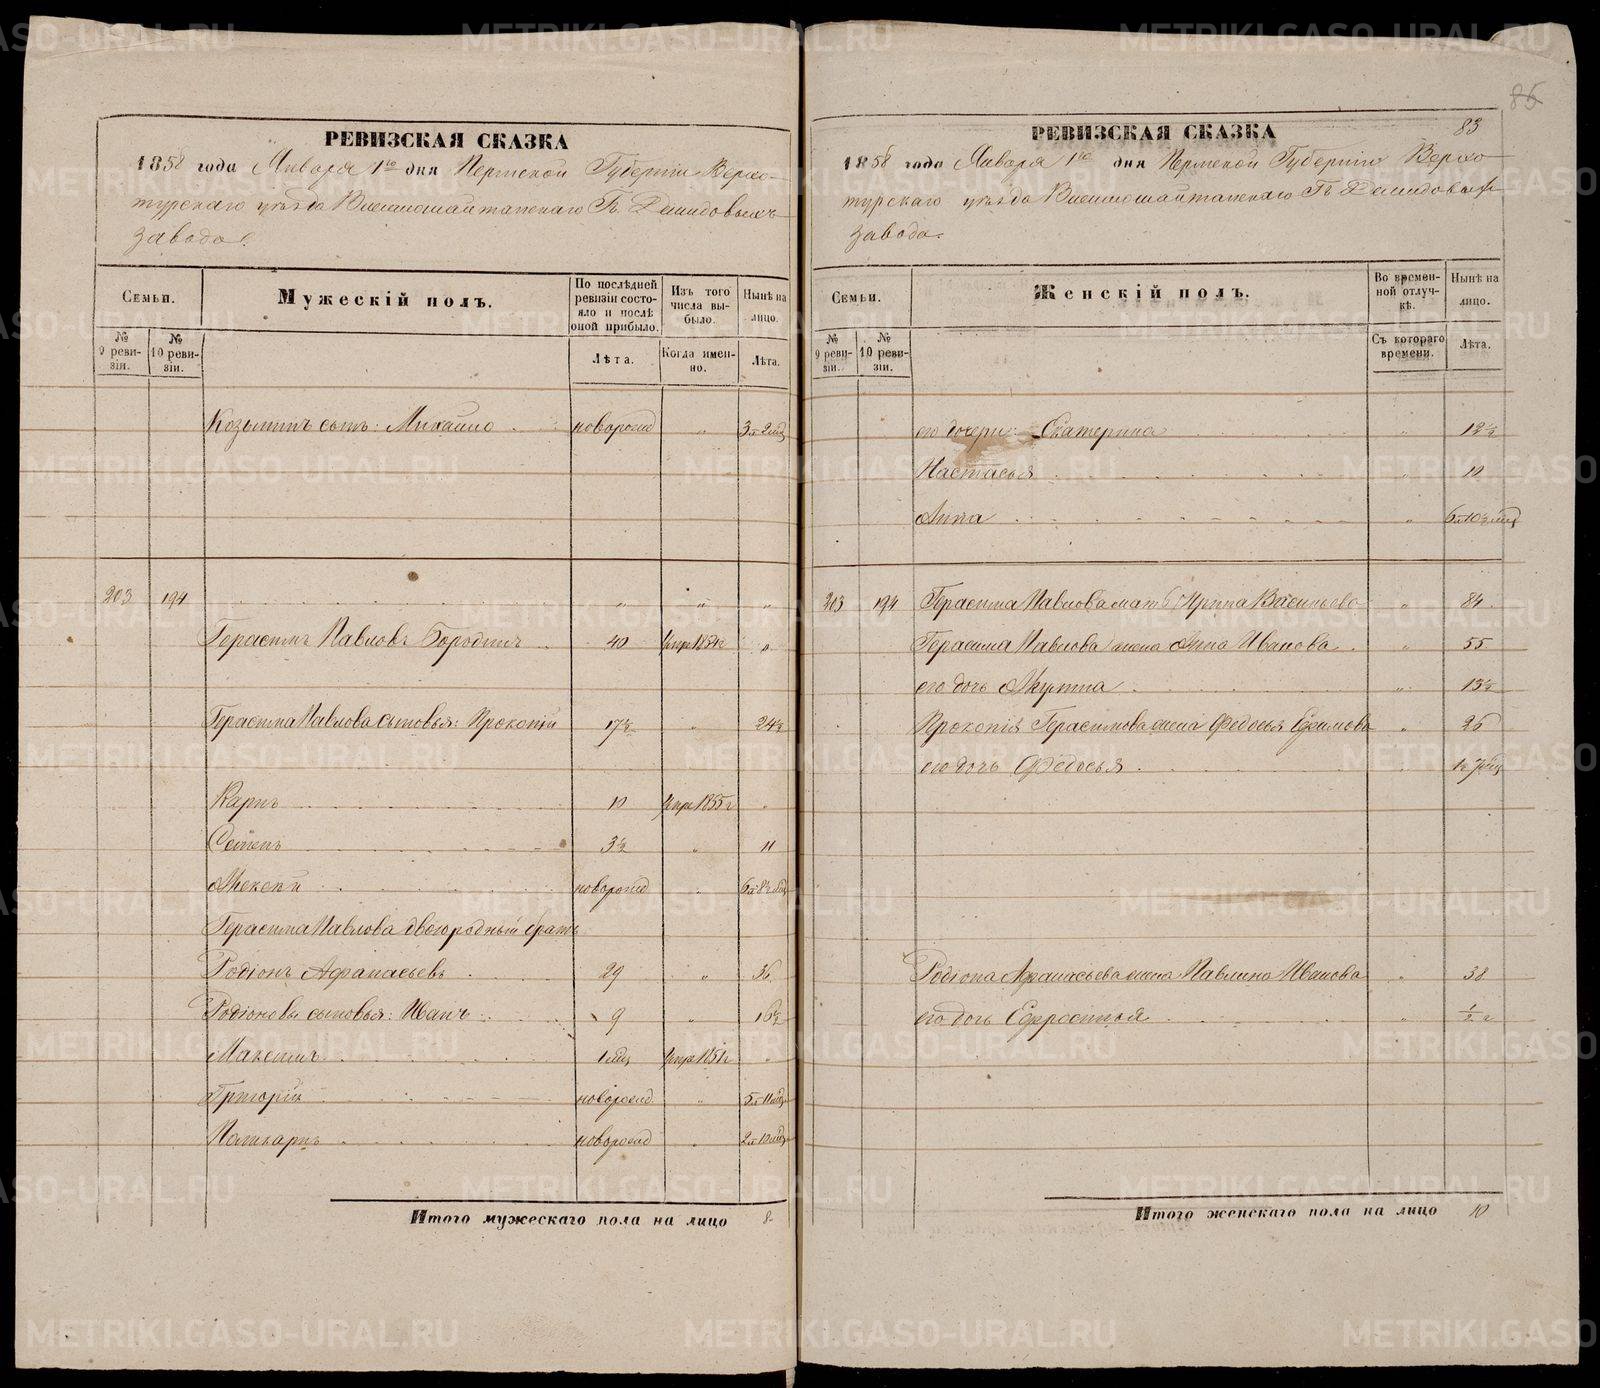 РЕВИЗСКАЯ СКАЗКА
1858 года Января 1го дня Пермской Губернiи Верхо-
турскаго уѣзда Висимошайтанскаго Гг. Демидовыхъ
завода.
Семьи.
Мужескiй полъ.
По послѣдней ревизiи состояло и послѣ оной прибыло.
Изъ того числа выбыло.
Нынѣ на лицо.
№ 9 ревизiи.
№ 10 ревизiи.
Лѣта.
Когда именно.
Лѣта.
Козьминъ сынъ: Михайло новорожд " 3 л 2 мѣс
203 194 " " "
Герасимъ Павловъ Бородинъ 40 умре 1854 г "
Герасима Павлова сыновья: Прокопiй 17½ " 24½
Карпъ 10 умре 1855 г "
Семенъ 3½ " 11
Алексѣй новорожд " 6 л 8½ мѣс
Герасима Павлова двоюродный братъ
Родiонъ Афанасьевъ 29 " 36
Родiоновы сыновья: Иванъ 9 " 16½
Максимъ 1 мѣс умре 1851 г "
Григорiй новорожд " 5 л 11 мѣс
Поликарпъ новорожд " 2 л 10 мѣс
Итого мужескаго пола на лицо 8
86
83
РЕВИЗСКАЯ СКАЗКА
1858 года Января 1го дня Пермской Губернiи Верхо-
турскаго уѣзда Висимошайтанскаго Гг. Демидовыхъ
завода.
Семьи.
Женскiй полъ.
Во временной отлучкѣ.
Нынѣ на лицо.
№ 9 ревизiи.
№ 10 ревизiи.
Съ котораго времени.
Лѣта.
его дочери: Екатерина " 12½
Настасья " 10
Анна " 6 л 10½ мѣс
203 194 Герасима Павлова мать Ирина Васильева " 84
Герасима Павлова жена Анна Иванова " 55
его дочь Акулина " 13½
Прокопiя Герасимова жена Федосья Ефимова " 26
его дочь Федосья " 1 г 7 мѣс
Родiона Афанасьева жена Павлина Иванова " 38
его дочь Ефросинья " ½ г
Итого женскаго пола на лицо 10
METRIKI.GASO-URAL.RU